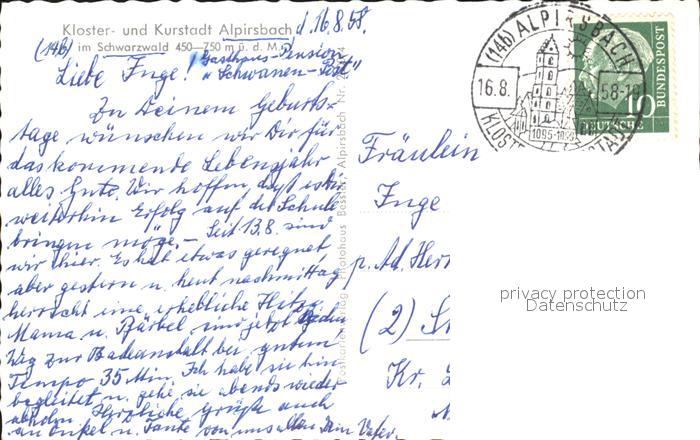 Kloster- und Kurstadt Alpirsbach, d. 16.8.58.
(14b) im Schwarzwald 450–750 m ü. d. M.
Gasthaus-Pension
"Schwanen-Post"
Liebe Inge!
Zu Deinem Geburts-
tage wünschen wir Dir für
das kommende Lebensjahr
alles Gute. Wir hoffen, daß es Dir
weiterhin Erfolg auf der Schule
bringen möge. – Seit 13.8. sind
wir hier. Es hat etwas geregnet,
aber gestern u. heut nachmittag
herrscht eine erhebliche Hitze.
Mama u. Bärbel sind jetzt
Weg zur Badeanstalt bei gutem
Tempo 35 Min. Ich habe sie hin
begleitet u. gehe sie abends wieder
abholen. Herzliche Grüße auch
an Onkel u. Tante von uns allen Dein Vater.
Photohaus Bessler, Alpirsbach Nr.
(14b) ALPIRSBACH
16.8.
58-1
1095-19
KLOSTE
10
DEUTSCHE
BUNDESPOST
Fräulein
Inge
p. Ad. Herr
(2)
Kr.
privacy protection
Datenschutz